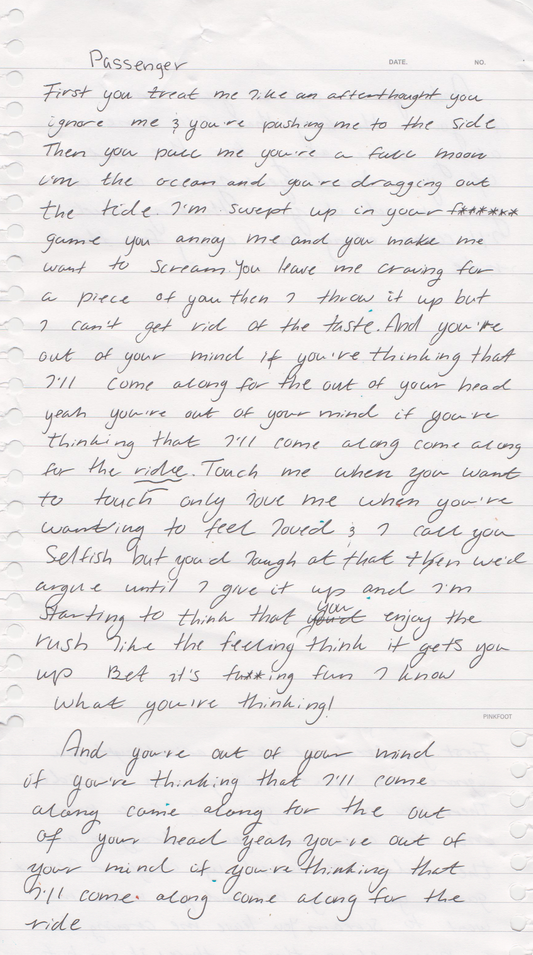 Passenger
DATE. NO.
First you treat me like an afterthought you
ignore me & you're pushing me to the side
Then you pull me you're a full moon
i'm the ocean and you're dragging out
the tide. I'm swept up in your f******
game you annoy me and you make me
want to scream. You leave me craving for
a piece of you then I throw it up but
I can't get rid of the taste. And you're
out of your mind if you're thinking that
I'll come along for the out of your head
yeah you're out of your mind if you're
thinking that I'll come along come along
for the ride. Touch me when you want
to touch only love me when you're
wanting to feel loved & I call you
Selfish but you'd laugh at that then we'd
argue until I give it up and I'm
Starting to think that you enjoy the
rush like the feeling think it gets you
up Bet it's fu**ing fun I know
what you're thinking!
PINKFOOT
And you're out of your mind
if you're thinking that I'll come
along come along for the out
of your head yeah you're out of
your mind if you're thinking that
I'll come along come along for the
ride